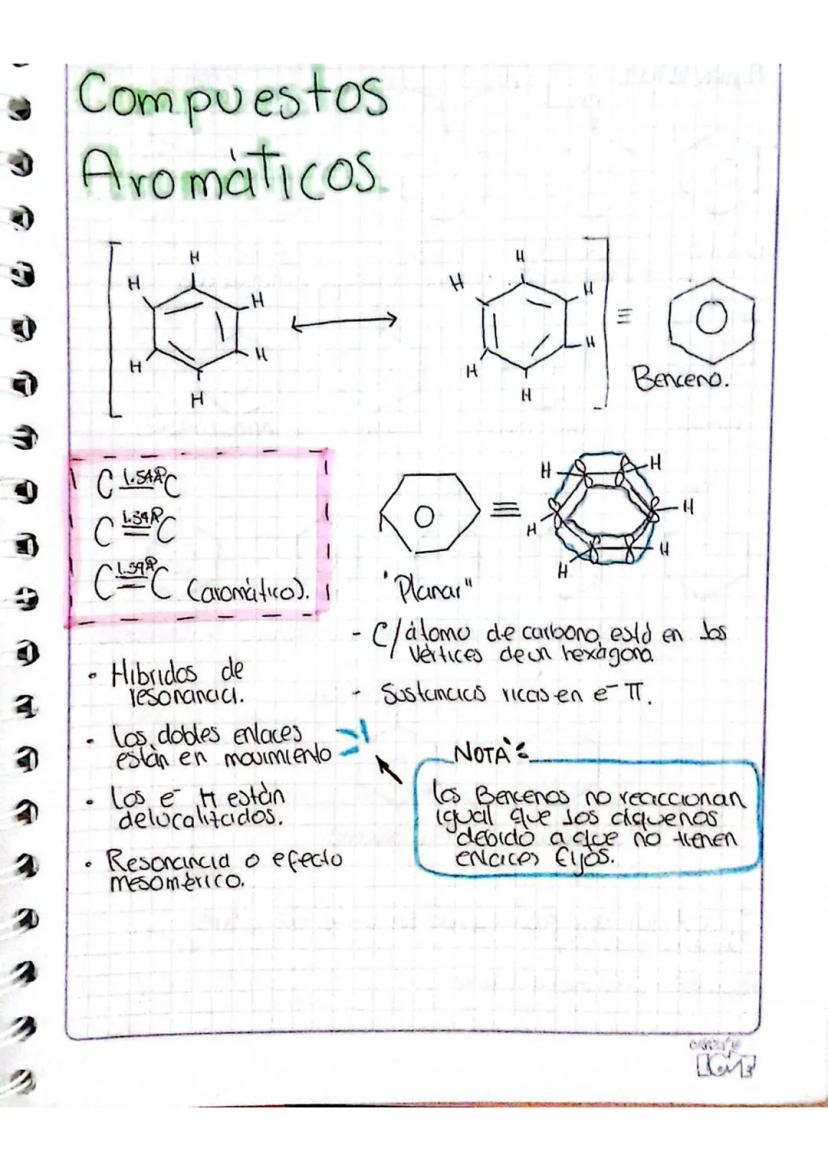 Compuestos
Aromáticos
H
H
H
H
H
H
H
H
H
H
H
H
≡
Benceno.
C 1.54Å C
C 1.34Å C
C 1.39Å C (aromático).
≡
H
H
H
H
H
H
"Planar"
- C/átomo de carbono está en los
vértices de un hexágono.
- Sustancias ricas en e⁻ π.
• Híbridos de
resonancia.
• Los dobles enlaces
están en movimiento
• Los e⁻ π están
delocalizados.
• Resonancia o efecto
mesomérico.
NOTA:
Los Bencenos no reaccionan
igual que los alquenos
debido a que no tienen
enlaces fijos.
LOVE